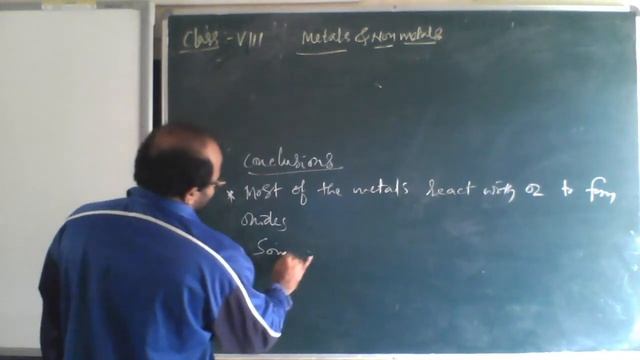 Class - VIII Metals & Non metals
Conclusions
* Most of the metals react with O2 to form
Oxides